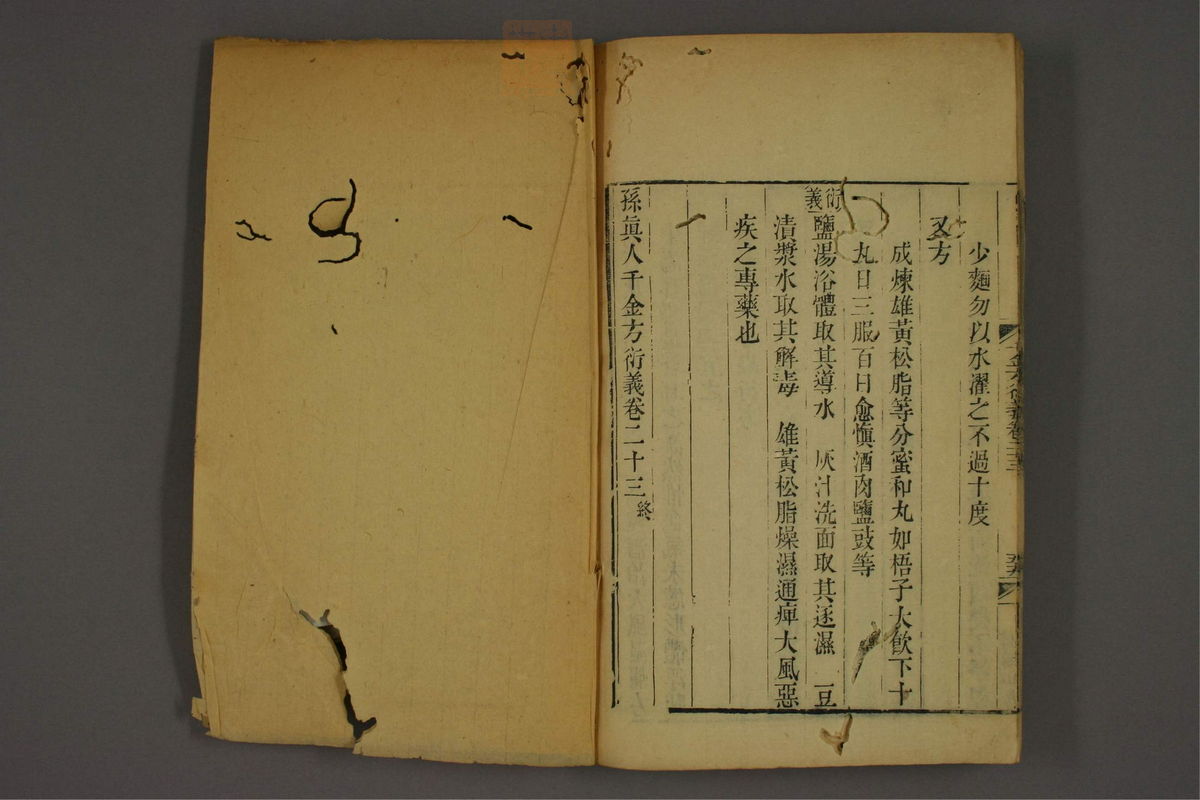 少麵勿以水濯之不過十度
又方
成煉雄黃松脂等分蜜和丸如梧子大飲下十
丸日三服百日愈慎酒肉鹽豉等
衍義
鹽湯浴體取其導水 灰汁洗面取其逐濕 豆
漬漿水取其解毒 雄黃松脂燥濕通痺大風惡
疾之專藥也
孫眞人千金方衍義卷二十三終